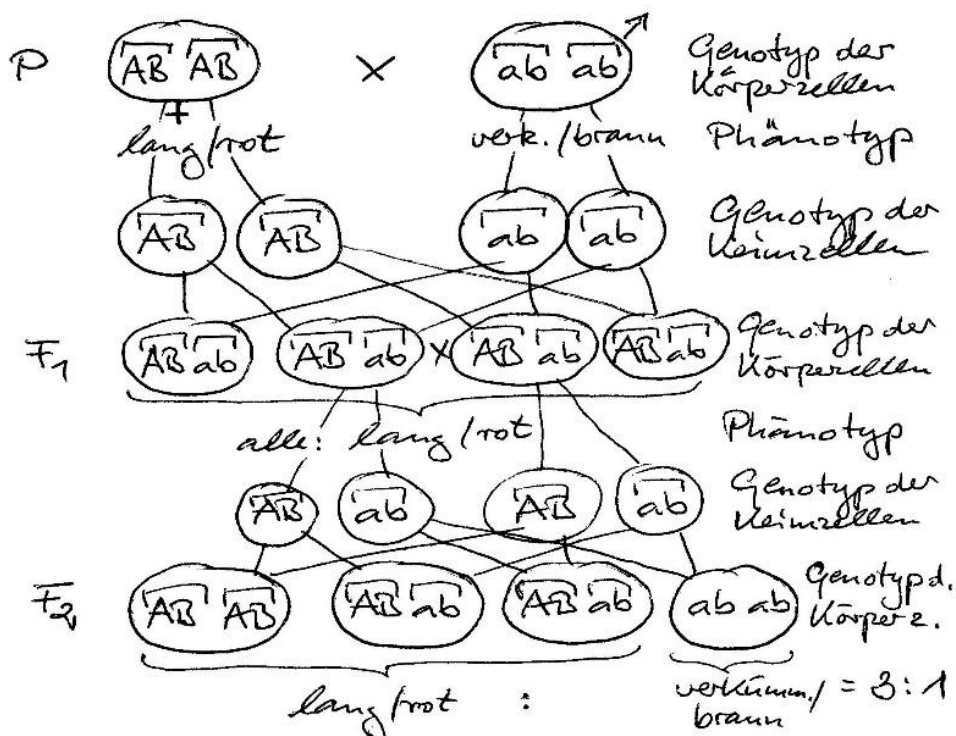 P AB AB × ab ab Genotyp der
Körperzellen
lang/rot verk./braun Phänotyp
AB AB ab ab Genotyp der
Keimzellen
F1 AB ab AB ab × AB ab AB ab Genotyp der
Körperzellen
alle: lang/rot Phänotyp
AB ab AB ab Genotyp der
Keimzellen
F2 AB AB AB ab AB ab ab ab Genotyp d.
Körperz.
lang/rot : verkümm./ = 3:1
braun